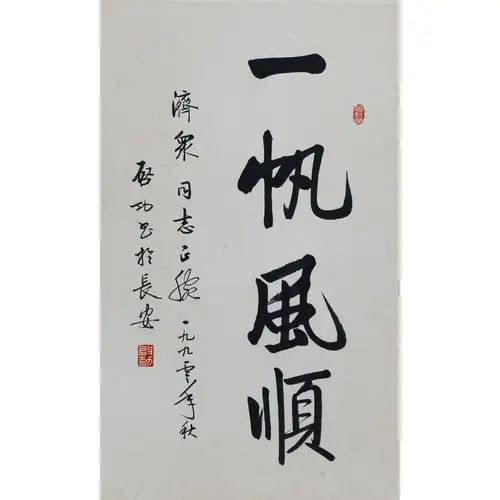 一帆風順
濟衆同志正腕一九九零年秋
启功书於長安